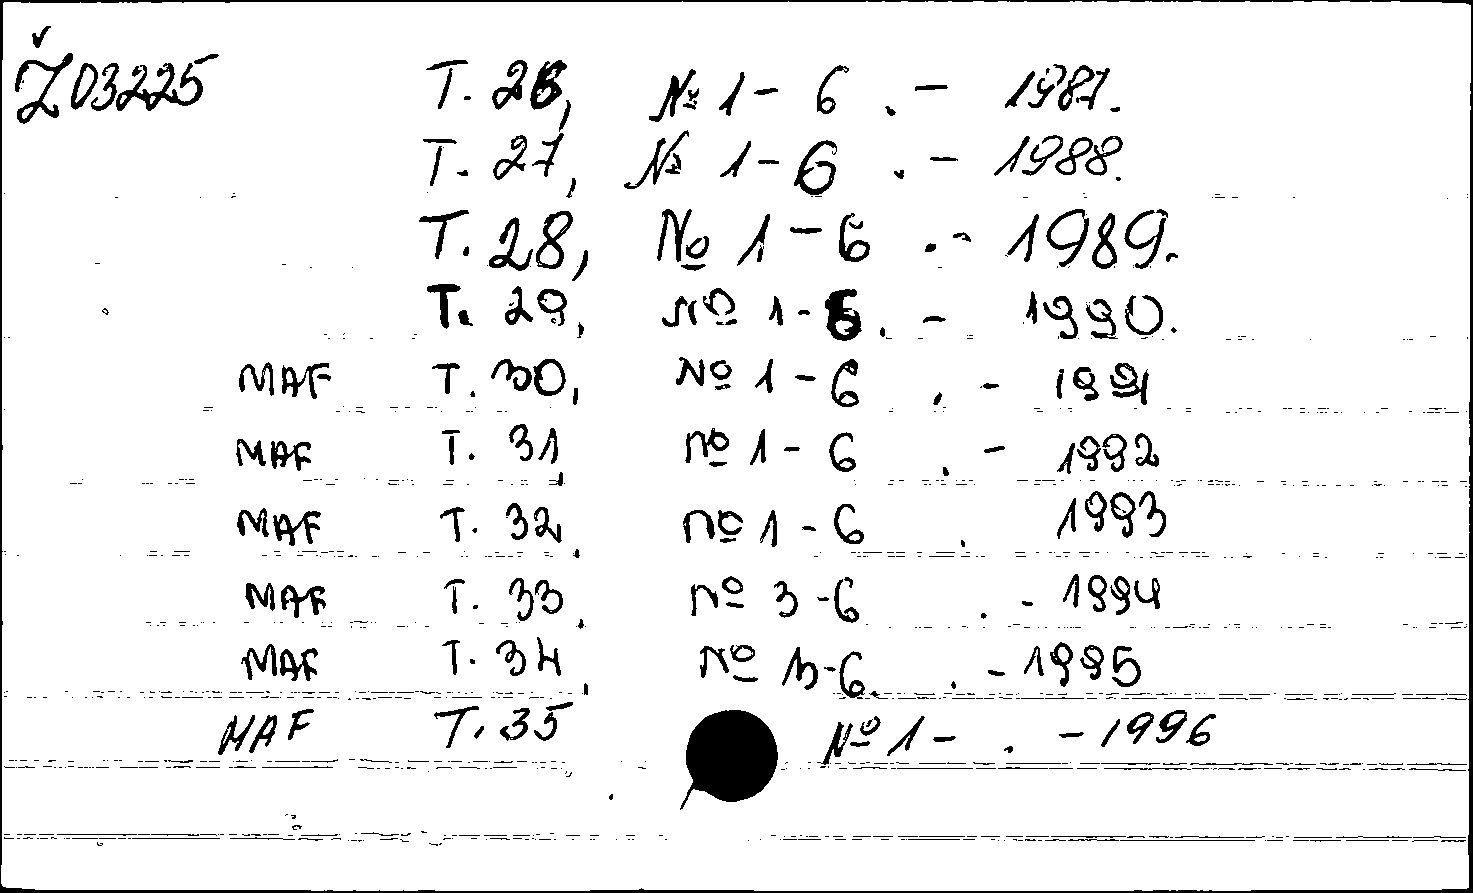 Ž03225 T. 26, № 1- 6 . - 1987.
T. 27, № 1-6 . - 1988.
T. 28, № 1-6 . - 1989.
T. 29, № 1-6. - 1990.
MAF T. 30, № 1-6 . - 1991
MAF T. 31, № 1-6 . - 1992
MAF T. 32, № 1-6 . 1993
MAF T. 33, № 3-6 . - 1994
MAF T. 34, № 3-6. . - 1995
MAF T. 35 № 1- . - 1996